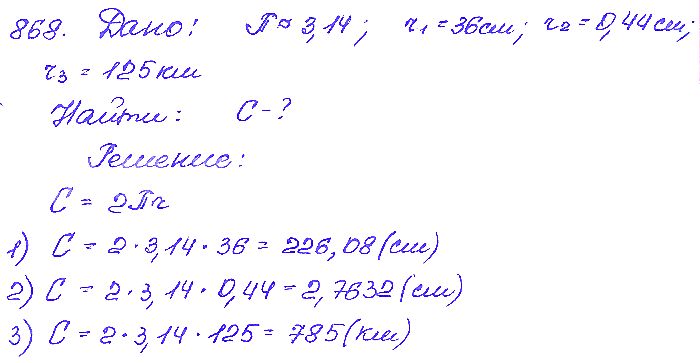 868. Дано: П ≈ 3,14; r₁ = 36 см; r₂ = 0,44 см;
r₃ = 125 км
Найти: С - ?
Решение:
С = 2Пr
1) С = 2 · 3,14 · 36 = 226,08 (см)
2) С = 2 · 3,14 · 0,44 = 2,7632 (см)
3) С = 2 · 3,14 · 125 = 785 (км)